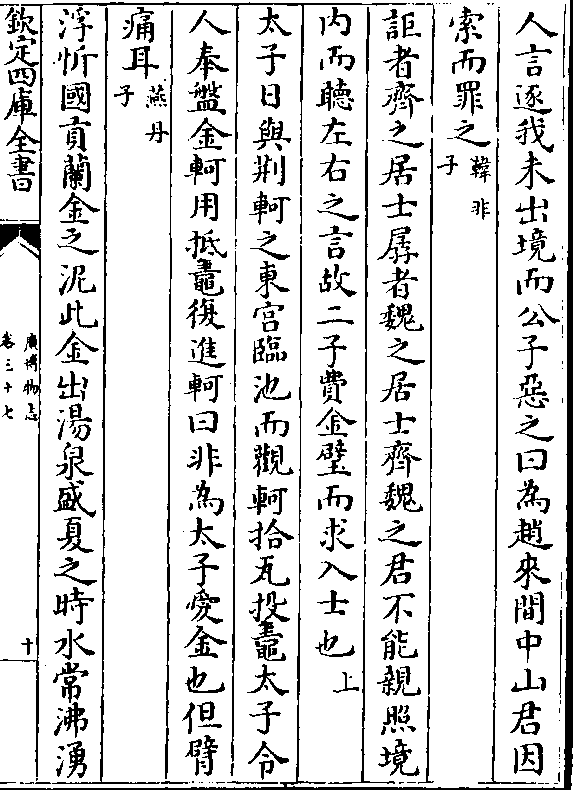 人言逐我未出境而公子惡之曰為趙來間中山君因
索而罪之韓非子
詎者齊之居士孱者魏之居士齊魏之君不能親照境
内而聴左右之言故二子費金璧而求入士也上
太子日與荆軻之東宫臨池而觀軻拾瓦投鼃太子令
人奉盤金軻用抵鼃復進軻曰非為太子愛金也但臂
痛耳燕丹子
浮忻國貢蘭金之泥此金出湯泉盛夏之時水常沸湧
欽定四庫全書
廣博物志
卷三十七
十